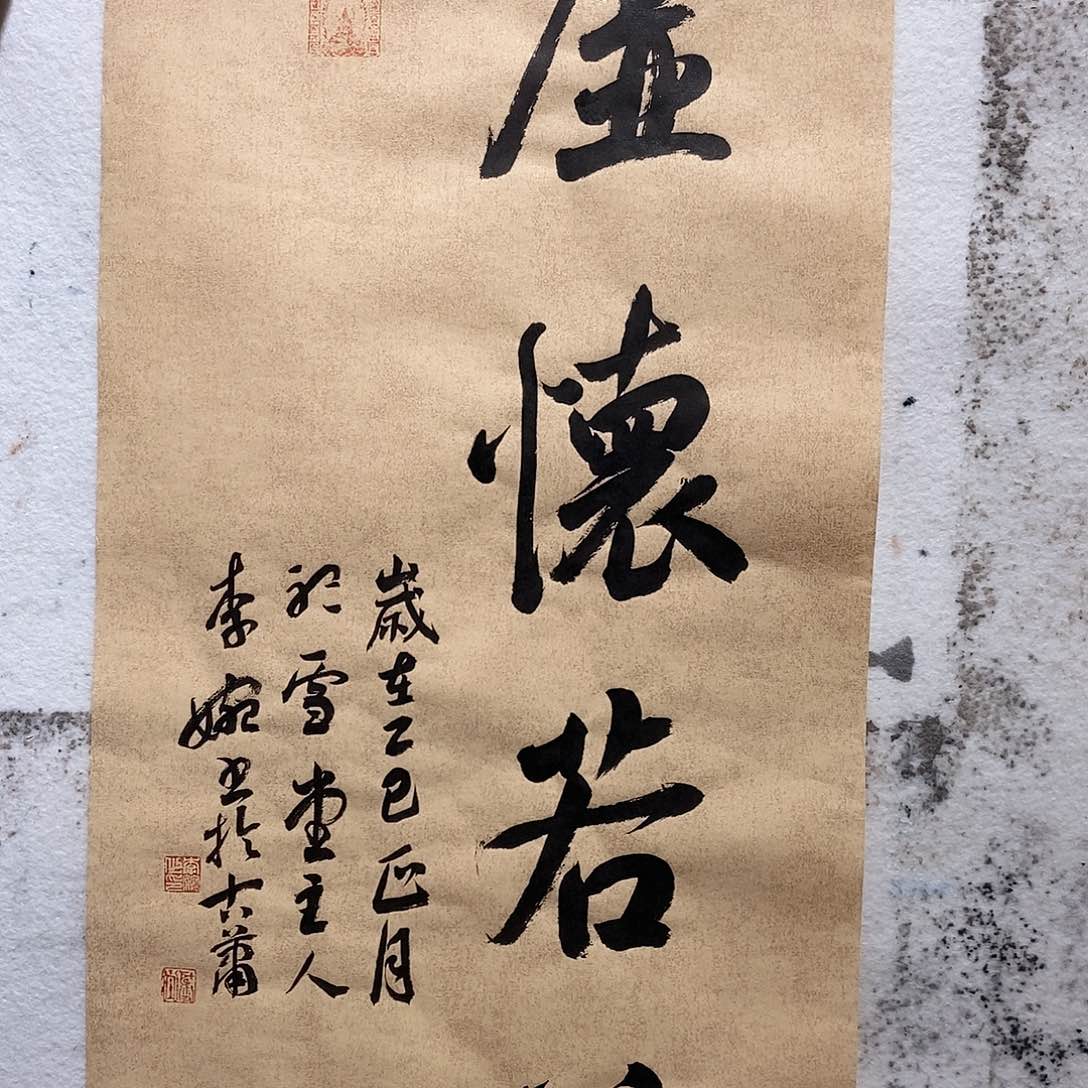 虚懷若
歲在乙巳正月
雪堂主人
李婉書於古蕭